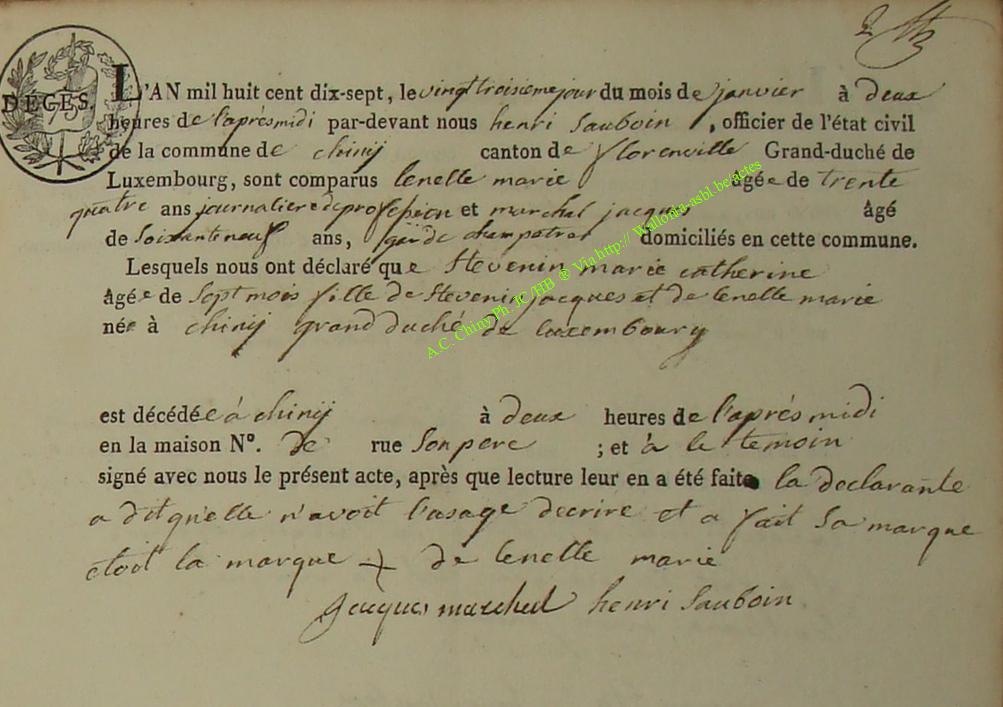 2
DECES.
75
L'AN mil huit cent dix-sept, le vingt troisieme jour du mois de janvier à deux
heures de l'aprés midi par-devant nous henri Sauboin , officier de l'état civil
de la commune de chinij canton de florenville Grand-duché de
Luxembourg, sont comparus lenelle marie âgée de trente
quatre ans journaliere de profession et marchal jacques âgé
de Soixante neuf ans, garde champetres domiciliés en cette commune.
Lesquels nous ont déclaré que Stevenin marie catherine
âgée de Sept mois fille de Stevenin jacques et de lenelle marie
née à chinij grand duché de Luxembourg
est décédée à chinij à deux heures de l'aprés midi
en la maison N°. de rue Son pere ; et à le temoin
signé avec nous le présent acte, après que lecture leur en a été faite la declarante
a dit qu'elle n'avoit l'usage decrire et a fait Sa marque
etoit la marque + de lenelle marie
jacques marchal henri Sauboin
A.C. Chiny Ph. JC/HB ® Via http:// Wallonia-asbl.be/actes